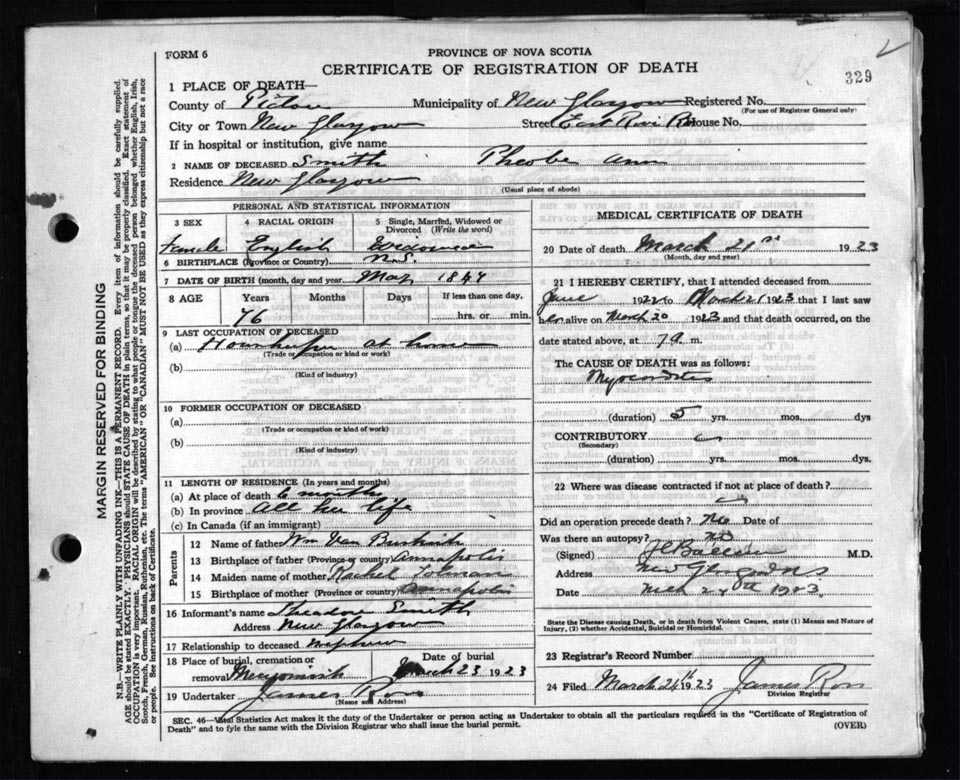 FORM 6
PROVINCE OF NOVA SCOTIA
CERTIFICATE OF REGISTRATION OF DEATH
329
1 PLACE OF DEATH—
County of Pictou Municipality of New Glasgow Registered No.
(For use of Registrar General only)
City or Town New Glasgow Street East River Rd House No.
If in hospital or institution, give name
2 NAME OF DECEASED Smith Pheobe Ann
Residence New Glasgow
(Usual place of abode)
PERSONAL AND STATISTICAL INFORMATION
3 SEX 4 RACIAL ORIGIN 5 Single, Married, Widowed or Divorced (Write the word)
Female English Widowed
6 BIRTHPLACE (Province or Country) N.S.
7 DATE OF BIRTH (month, day and year) May 1847
8 AGE Years Months Days If less than one day,
76 hrs. or min.
9 LAST OCCUPATION OF DECEASED
(a) Housekeeper at home
(Trade or occupation or kind or work)
(b)
(Kind of industry)
10 FORMER OCCUPATION OF DECEASED
(a)
(Trade or occupation or kind of work)
(b)
(Kind of industry)
11 LENGTH OF RESIDENCE (In years and months)
(a) At place of death 6 months
(b) In province All her life
(c) In Canada (if an immigrant)
Parents
12 Name of father Wm Van Buskirk
13 Birthplace of father (Province or country) Annapolis
14 Maiden name of mother Rachel
15 Birthplace of mother (Province or country) Annapolis
16 Informant's name Theadore Smith
Address New Glasgow
17 Relationship to deceased nephew
18 Place of burial, cremation or removal Date of burial
March 23 1923
19 Undertaker James Ross
(Name and Address)
MEDICAL CERTIFICATE OF DEATH
20 Date of death March 21st 1923
(Month, day and year)
21 I HEREBY CERTIFY, that I attended deceased from
June 1922 to March 21 1923 that I last saw
her alive on March 20 1923 and that death occurred, on
date stated above, at 7 a. m.
The CAUSE OF DEATH was as follows:
Myocarditis
(duration) 5 yrs. mos. dys
CONTRIBUTORY
(Secondary)
(duration) yrs. mos. dys.
22 Where was disease contracted if not at place of death?
Did an operation precede death? No Date of
Was there an autopsy? No
(Signed) M.D.
Address New Glasgow NS
Date Mch 1923
State the Disease causing Death, or in death from Violent Causes, state (1) Means and Nature
of Injury, (2) whether Accidental, Suicidal or Homicidal.
23 Registrar's Record Number
24 Filed March 1923 James Ross
Division Registrar
SEC. 46—Vital Statistics Act makes it duty of the Undertaker or person acting as Undertaker to obtain all the particulars required in the "Certificate of Registration of
Death" and to fyle the same with the Division Registrar who shall issue the burial permit.
(OVER)
MARGIN RESERVED FOR BINDING
N.B.—WRITE PLAINLY WITH UNFADING INK—THIS IS A PERMANENT RECORD. Every item of information should be carefully supplied.
AGE should be stated EXACTLY. PHYSICIANS should STATE CAUSE OF DEATH in plain terms, so that it may be properly classified. Exact statement of
OCCUPATION is very important. RACIAL ORIGIN will be described by stating to what people or tongue the deceased person belonged, whether English, Irish,
Scotch, French, German, Russian, Ruthenian, etc. The terms "AMERICAN" OR "CANADIAN" MUST NOT BE USED as they express citizenship but not a race
or people. See instructions on back of Certificate.